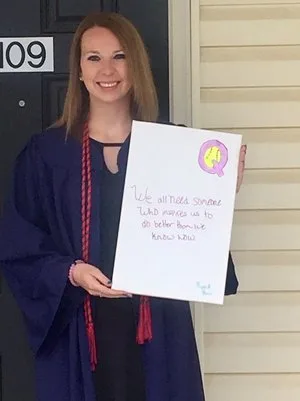 109
Q
We all need someone
who inspires us to
do better than we
know how